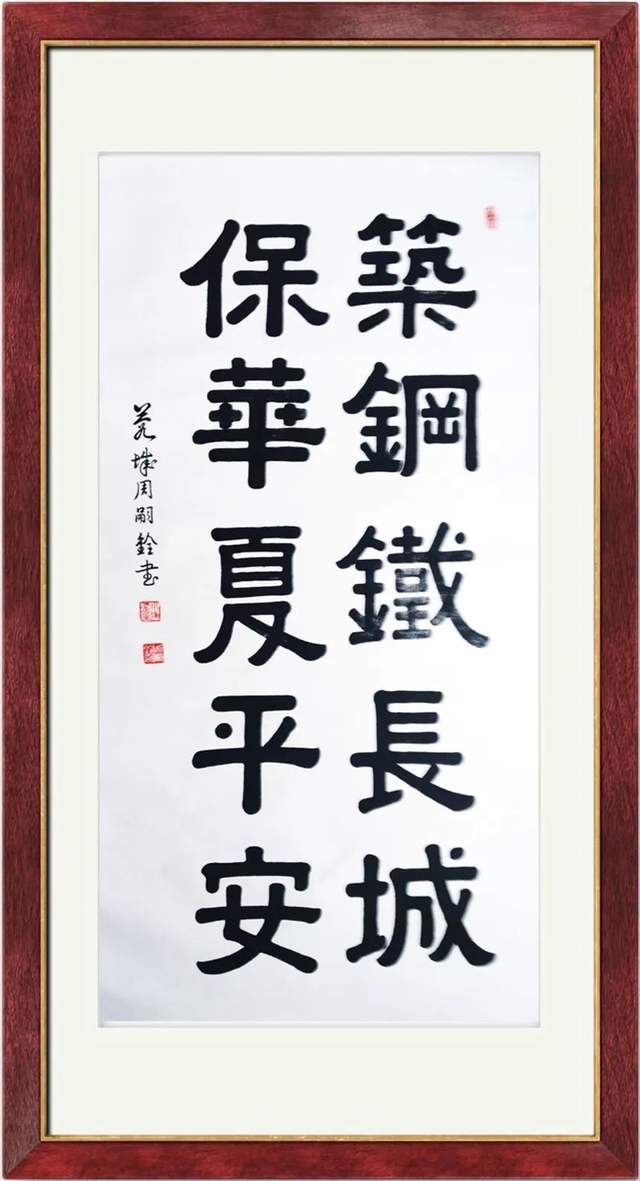 築鋼鐵長城
保華夏平安
周嗣銓書